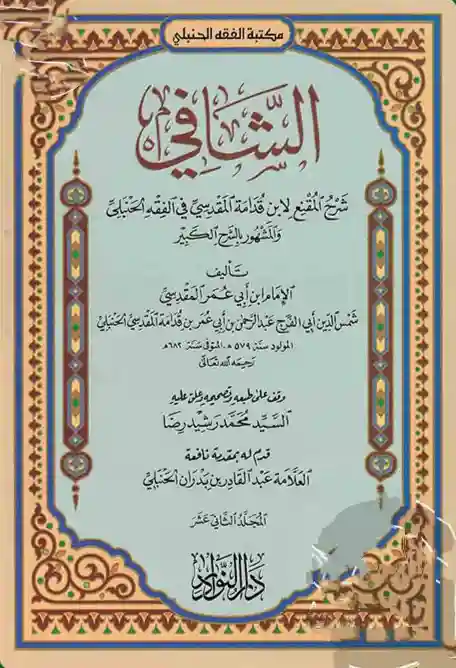 مكتبة الفقه الحنبلي
الشَّافِي
شَرْحُ المُقْنِعِ لِابْنِ قُدَامَةَ المَقْدِسِيِّ فِي الفِقْهِ الحَنْبَلِيِّ
وَالمَشْهُورِ بِالشَّرْحِ الكَبِيرِ
تأليف
الإمام ابن أبي عُمَر المَقْدِسِيِّ
شمس الدين أبي الفرج عبد الرحمن بن أبي عُمَر بن قُدَامَة المَقْدِسِيّ الحَنْبَلِيّ
المولود سنة ٥٧٩ هـ - المتوفى سَنَة ٦٨٢ هـ
رحمه الله تعالى
وقف على طبعه وتصحيحه وعلق عليه
السَّيِّد مُحَمَّد رَشِيد رِضَا
قدم له بمقدمة نافعة
العَلَّامَة عَبْد القَادِر بن بَدْرَان الحَنْبَلِيّ
المُجَلَّدُ الثَّانِي عَشَر
دار النوادر